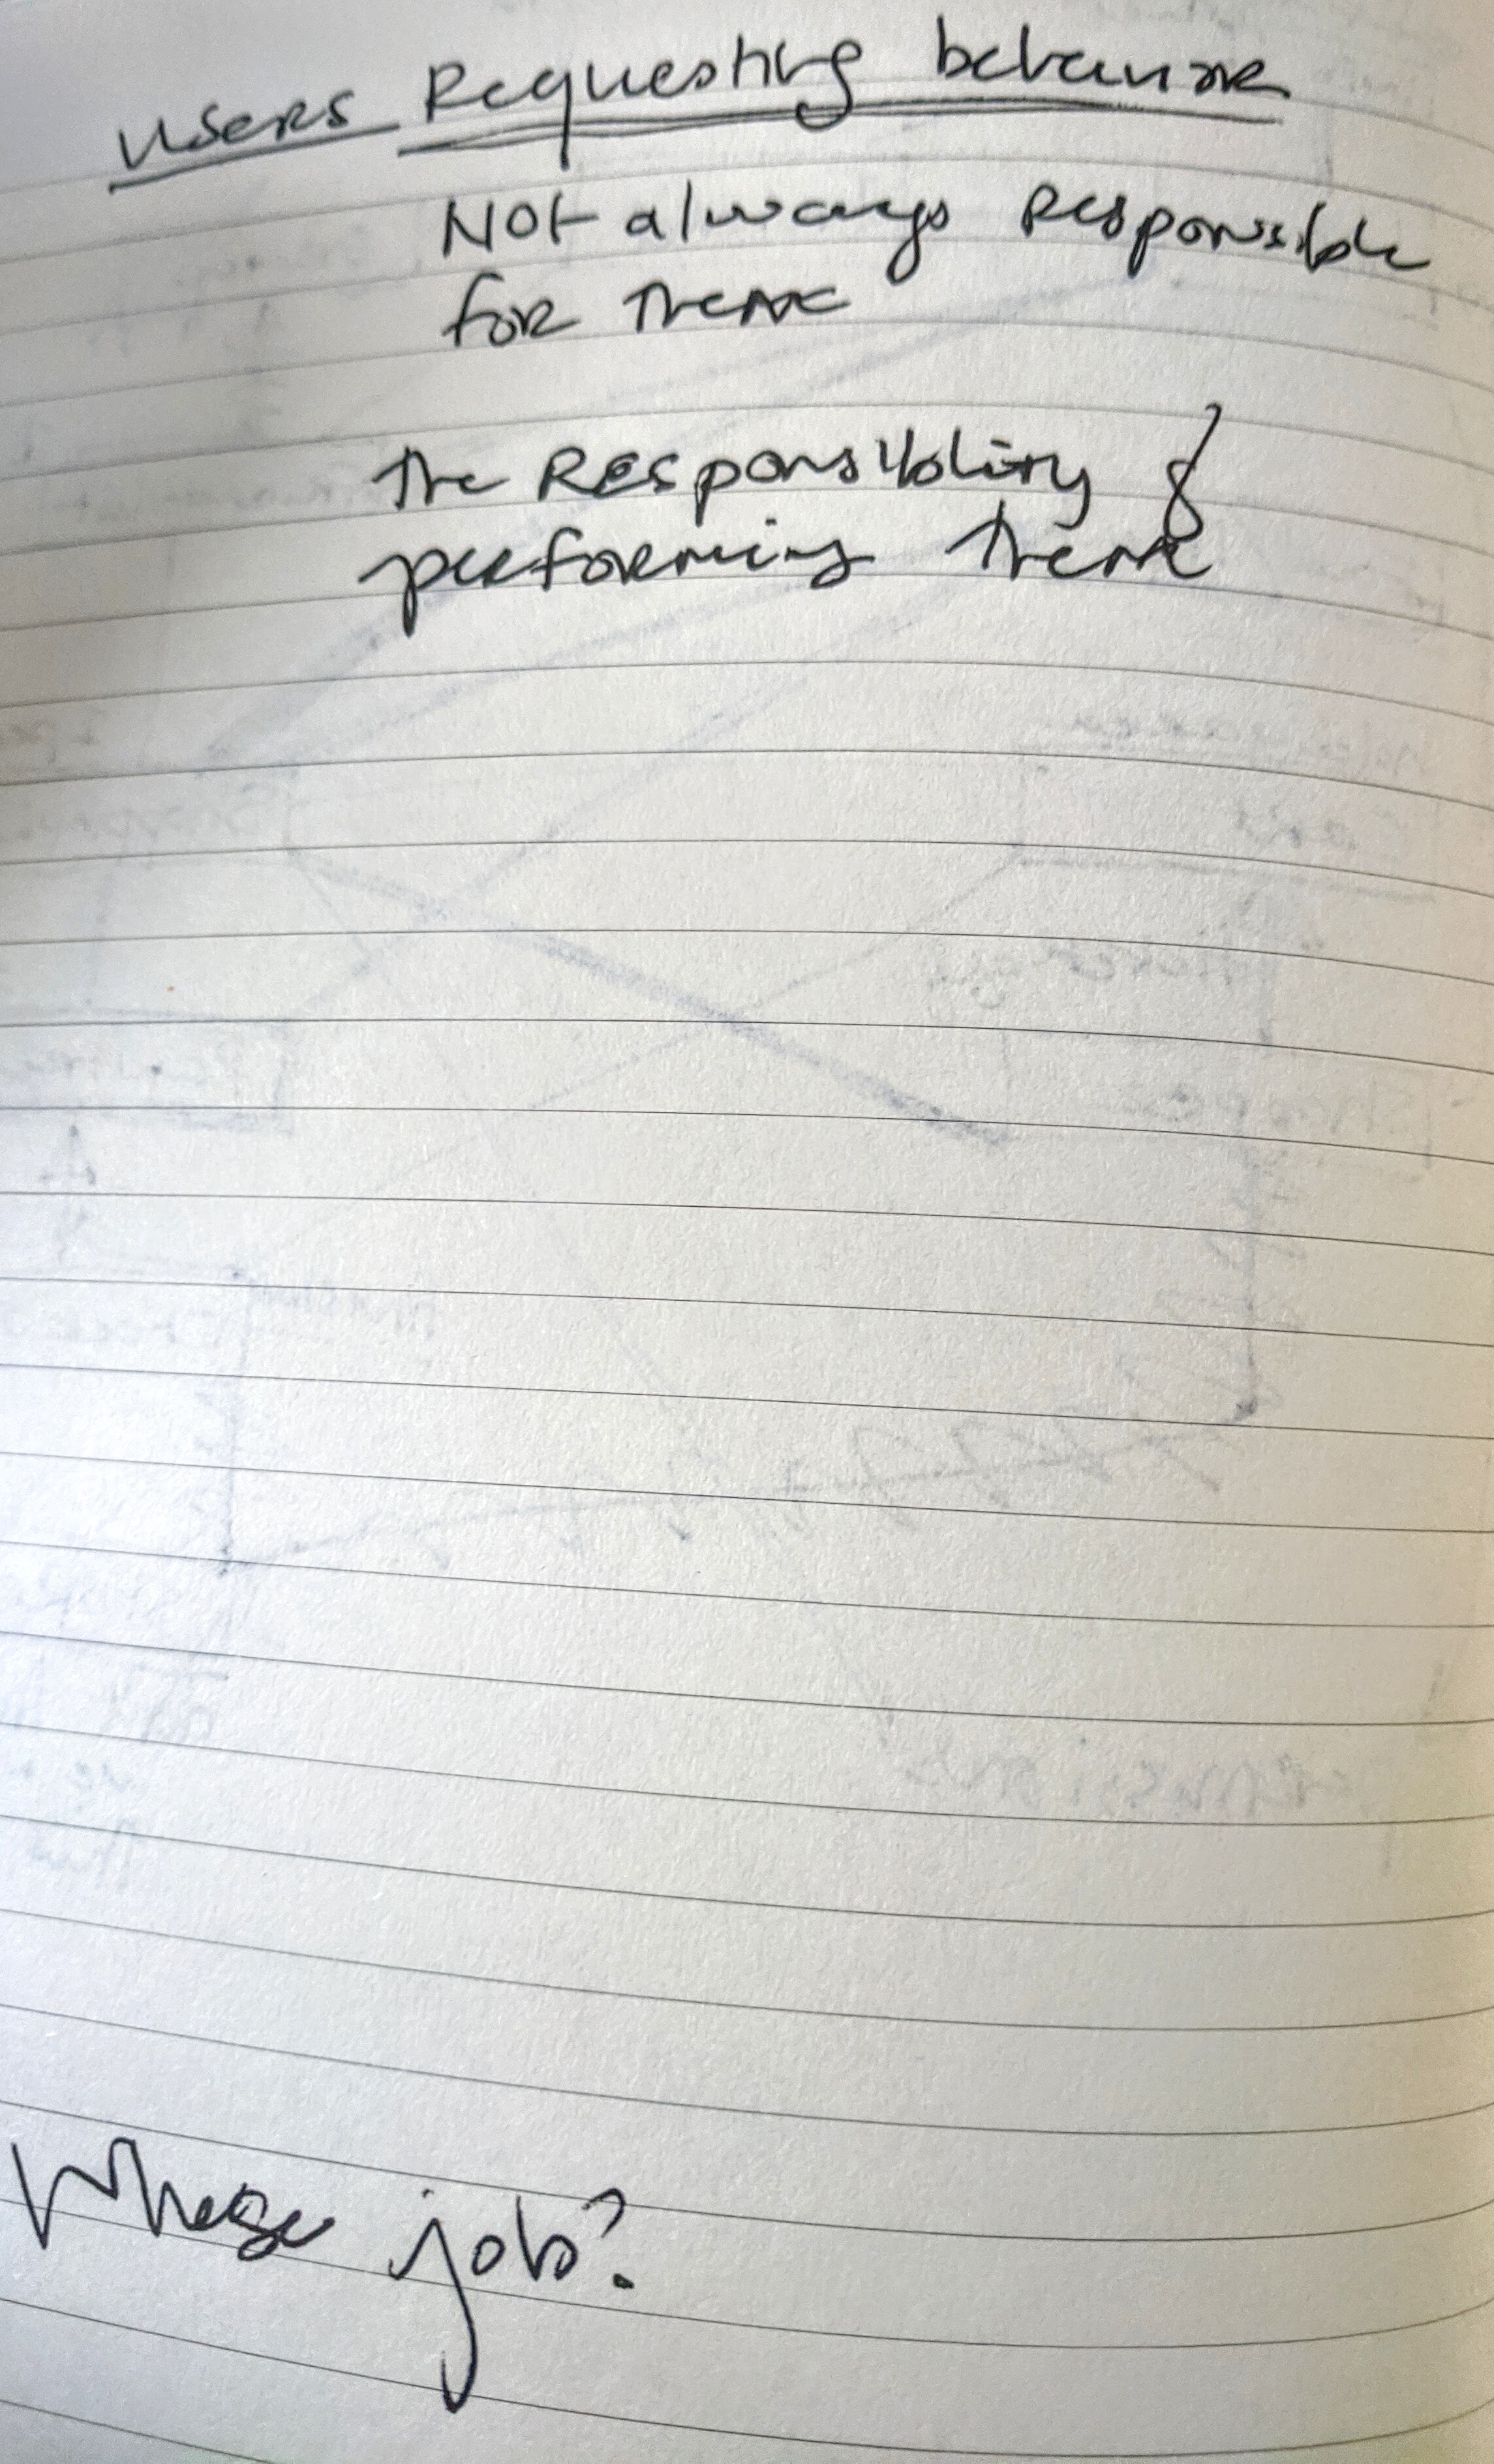 Users Requesting behavior
Not always Responsible
for them
the Responsibility &
performing them
Whose job?